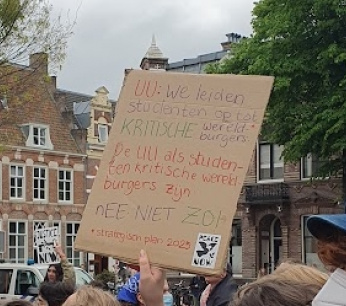 UU: We leiden
studenten op tot
KRITISCHE wereld-
burgers.*
De UU als studen-
ten kritische wereld
burgers zijn
nEE NIET ZO!
*strategisch plan 2025
PEACE
NOW
NOW